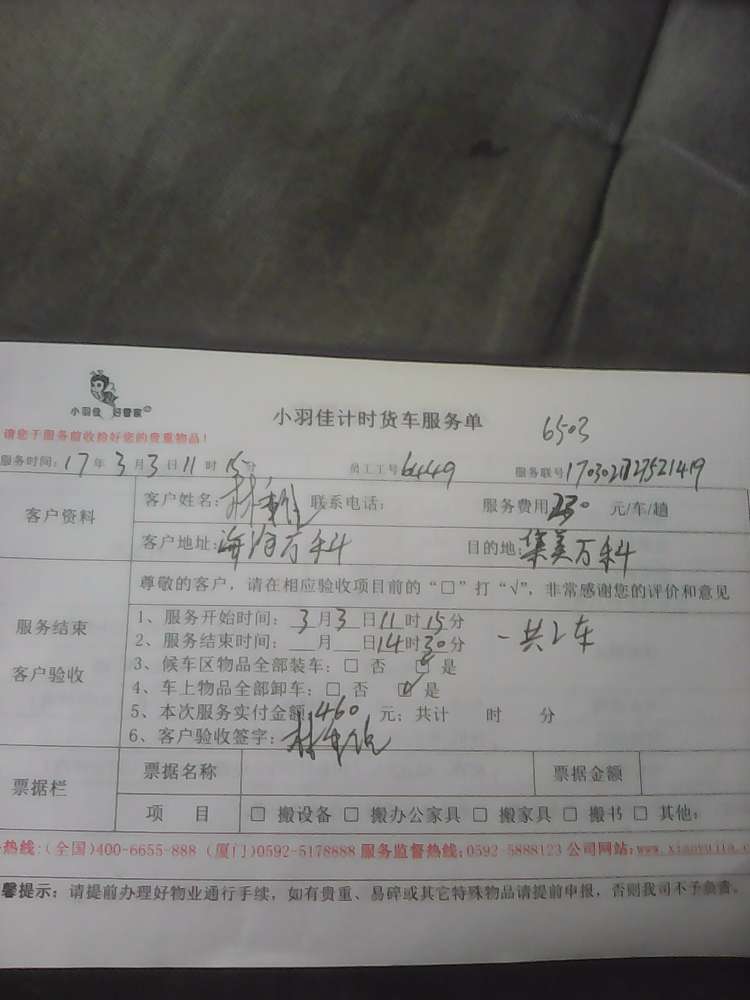 小羽佳 好管家
小羽佳计时货车服务单
6503
请您于服务前收拾好您的贵重物品！
服务时间：17年3月3日11时15分 员工工号6449 服务联号
客户资料
客户姓名：林 联系电话： 服务费用230 元/车/趟
客户地址：海沧万科 目的地：集美万科
服务结束
客户验收
尊敬的客户，请在相应验收项目前的“□”打“√”，非常感谢您的评价和意见
1、服务开始时间：3月3日11时15分
2、服务结束时间：__月__日14时30分
一共2车
3、候车区物品全部装车：□ 否 ☑ 是
4、车上物品全部卸车：□ 否 ☑ 是
5、本次服务实付金额：460 元；共计 时 分
6、客户验收签字：林
票据栏
票据名称 票据金额
项 目 □ 搬设备 □ 搬办公家具 □ 搬家具 □ 搬书 □ 其他：
热线：(全国)400-6655-888 (厦门)0592-5178888 服务监督热线：0592-5888123 公司网站：
馨提示：请提前办理好物业通行手续，如有贵重、易碎或其它特殊物品请提前申报，否则我司不予负责。